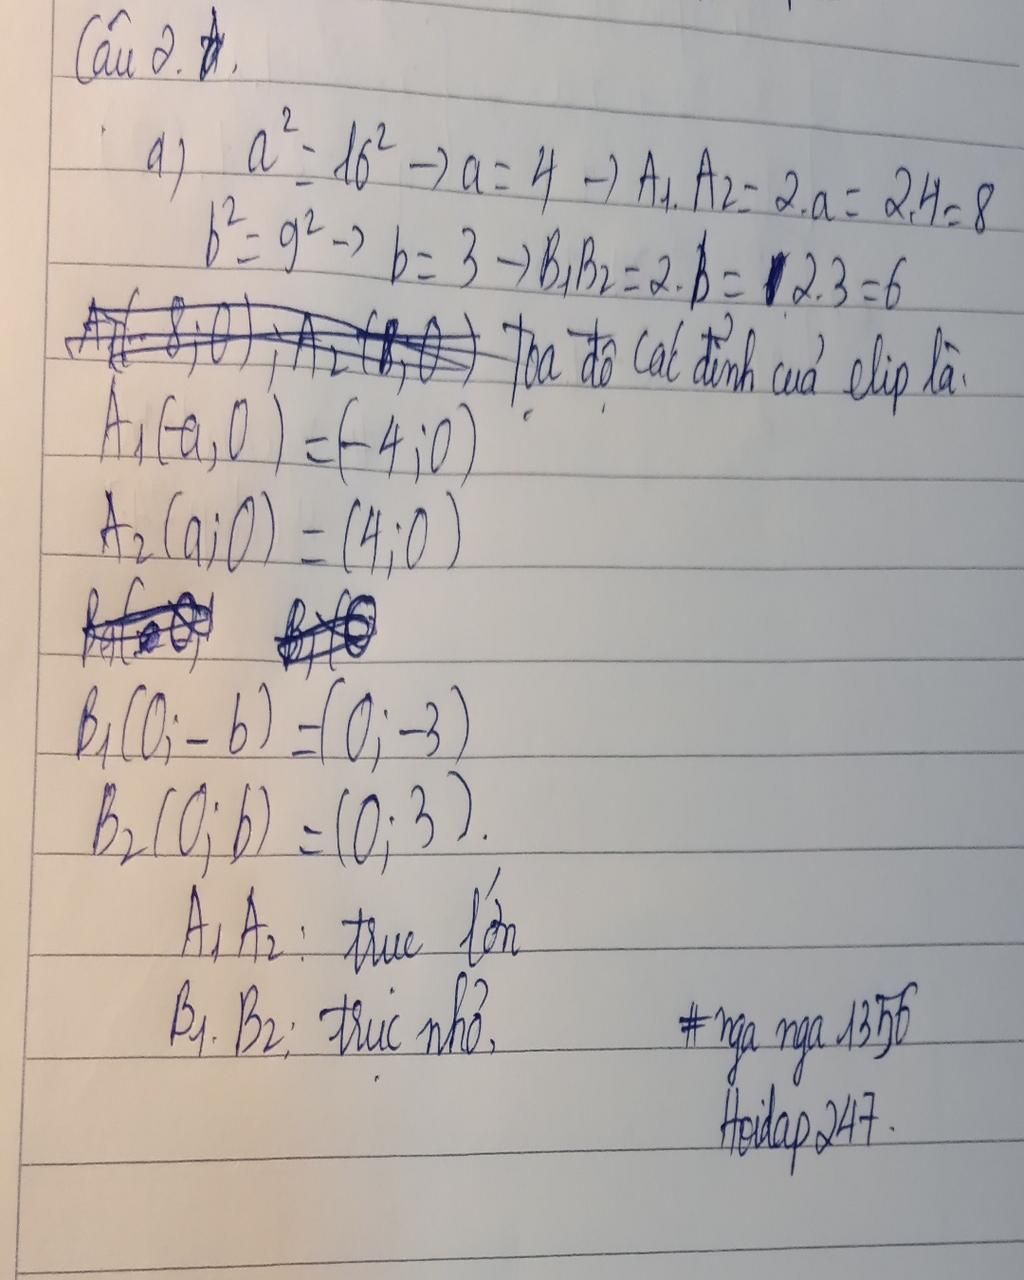 Câu 2.
a) a² = 16² → a = 4 → A₁.A₂ = 2.a = 2.4 = 8
b² = 9² → b = 3 → B₁B₂ = 2.b = 2.3 = 6
Tọa độ các đỉnh cuả elip là.
A₁(-a,0) = (-4;0)
A₂(a;0) = (4;0)
B₁(0;-b) = (0;-3)
B₂(0;b) = (0;3).
A₁A₂: trục lớn
B₁.B₂: trục nhỏ.
#nga nga 1356
Hoidap247.